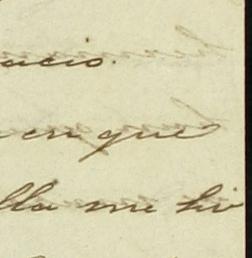 acio.
en que
lla me hi